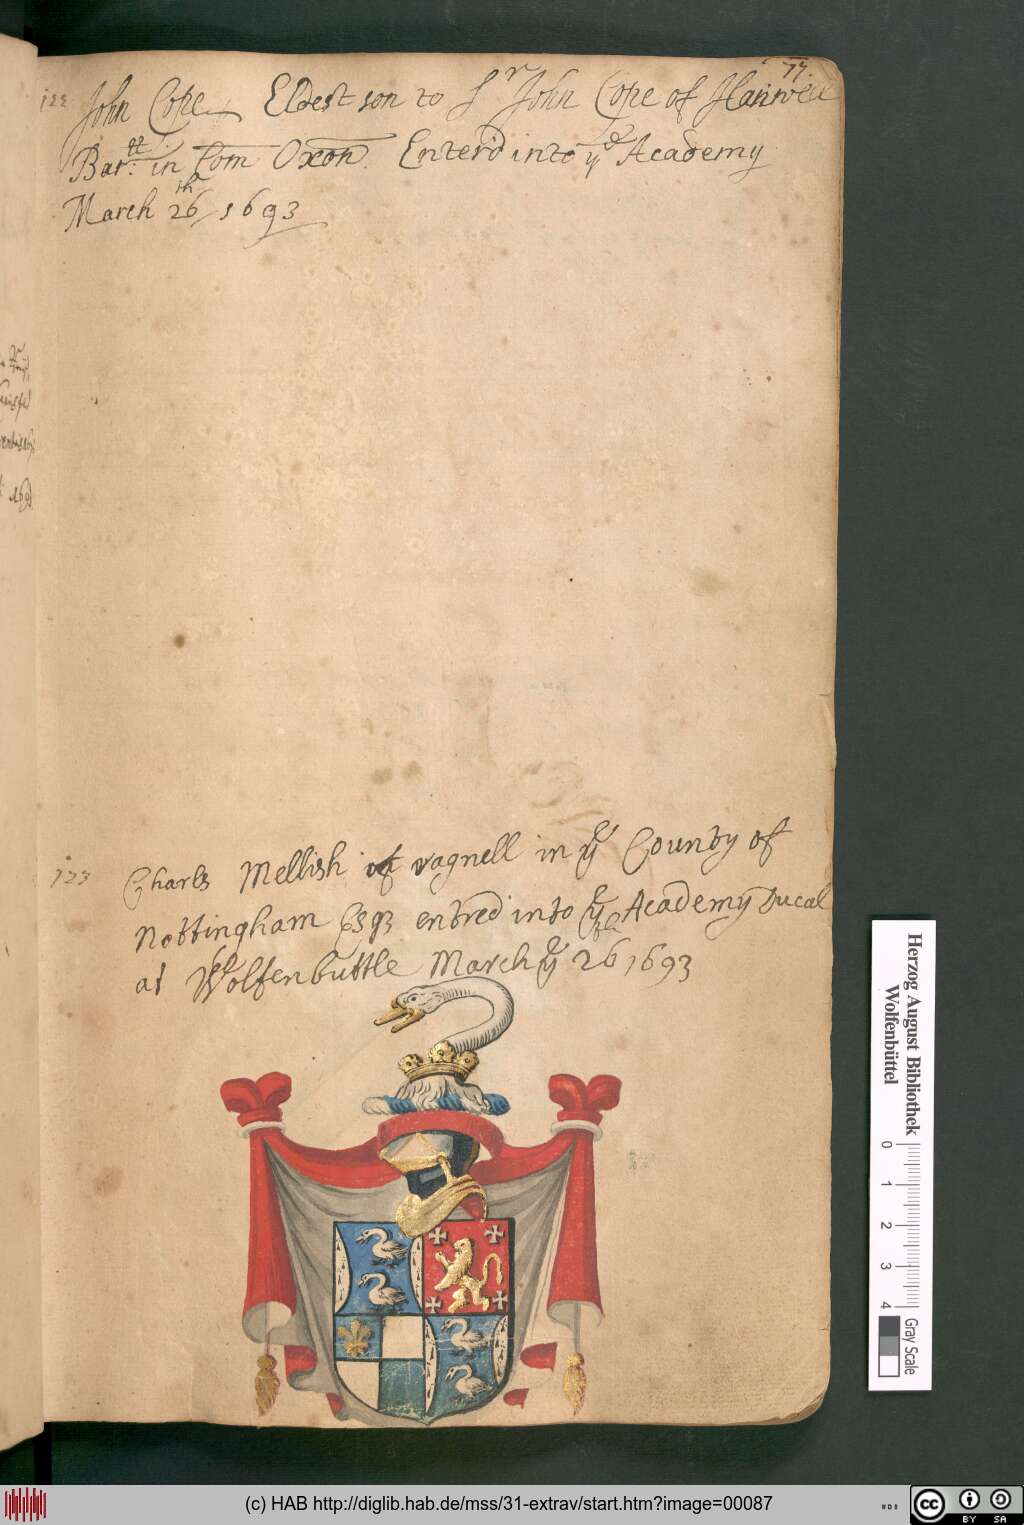 77.
122 John Cope Eldest son to Sr John Cope of Hanwell
Bar:tt in Com Oxon. Enter'd into ye Academy
March 26th 1693
123 Charls Mellish of ragnell in ye County of
Nottingham Esqr entred into ye Academy Ducal
at Wolfenbuttle March ye 26th 1693
Herzog August Bibliothek
Wolfenbüttel
0 1 2 3 4
Gray Scale
(c) HAB http://diglib.hab.de/mss/31-extrav/start.htm?image=00087
cc BY SA